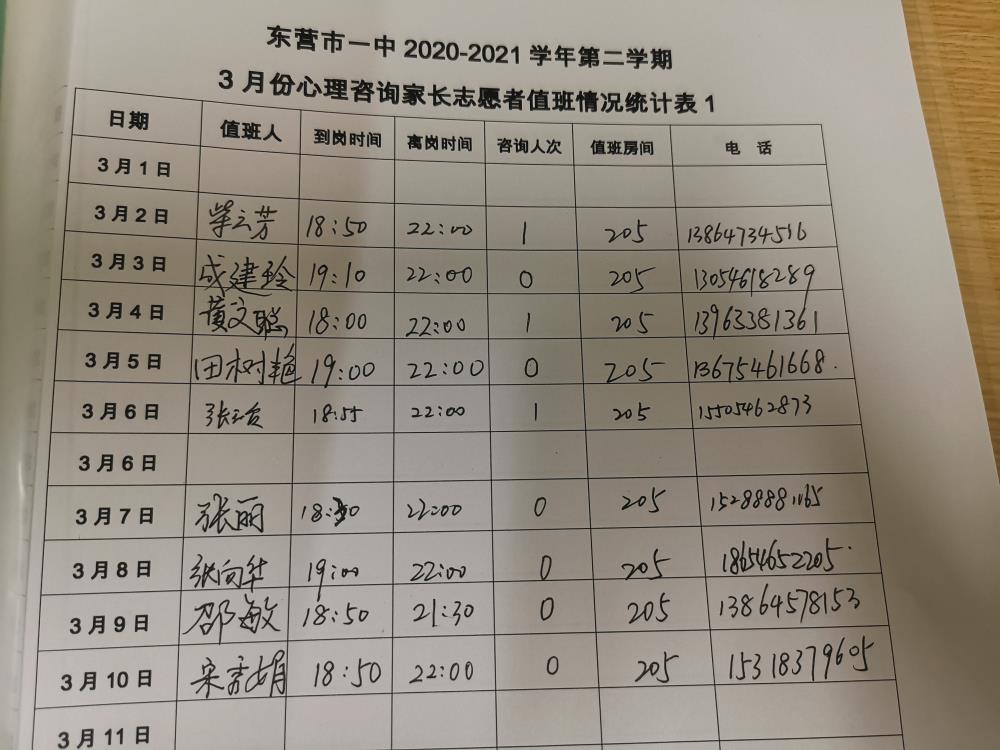 东营市一中2020-2021学年第二学期
3月份心理咨询家长志愿者值班情况统计表1
日期 值班人 到岗时间 离岗时间 咨询人次 值班房间 电 话
3月1日
3月2日 18:50 22:00 1 205 13864734516
3月3日 成建玲 19:10 22:00 0 205 13054618289
3月4日 黄文聪 18:00 22:00 1 205 13963381361
3月5日 田树艳 19:00 22:00 0 205 13675461668.
3月6日 18:55 22:00 1 205 15505462873
3月6日
3月7日 张丽 22:00 0 205
3月8日 张向华 19:00 22:00 0 205 18654652205.
3月9日 邵敏 18:50 21:30 0 205 13864578153
3月10日 18:50 22:00 0 205 15318379605
3月11日